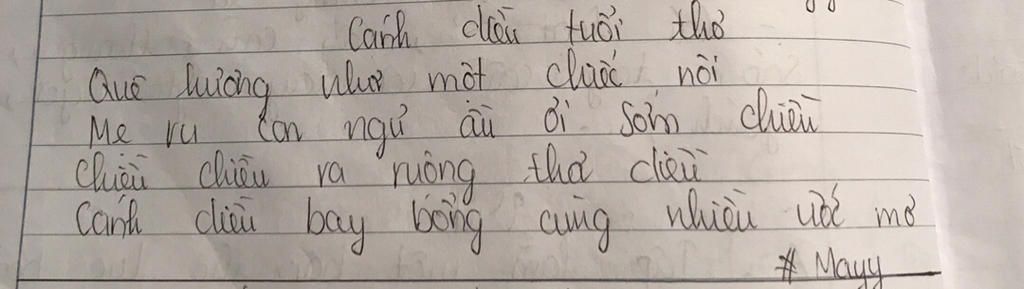 Cánh diều tuổi thơ
Quê hương như một chiếc nôi
Mẹ ru con ngủ ầu ơi sớm chiều
Chiều chiều ra ruộng thả diều
Cánh diều bay bổng cùng nhiều ước mơ
# Mayy